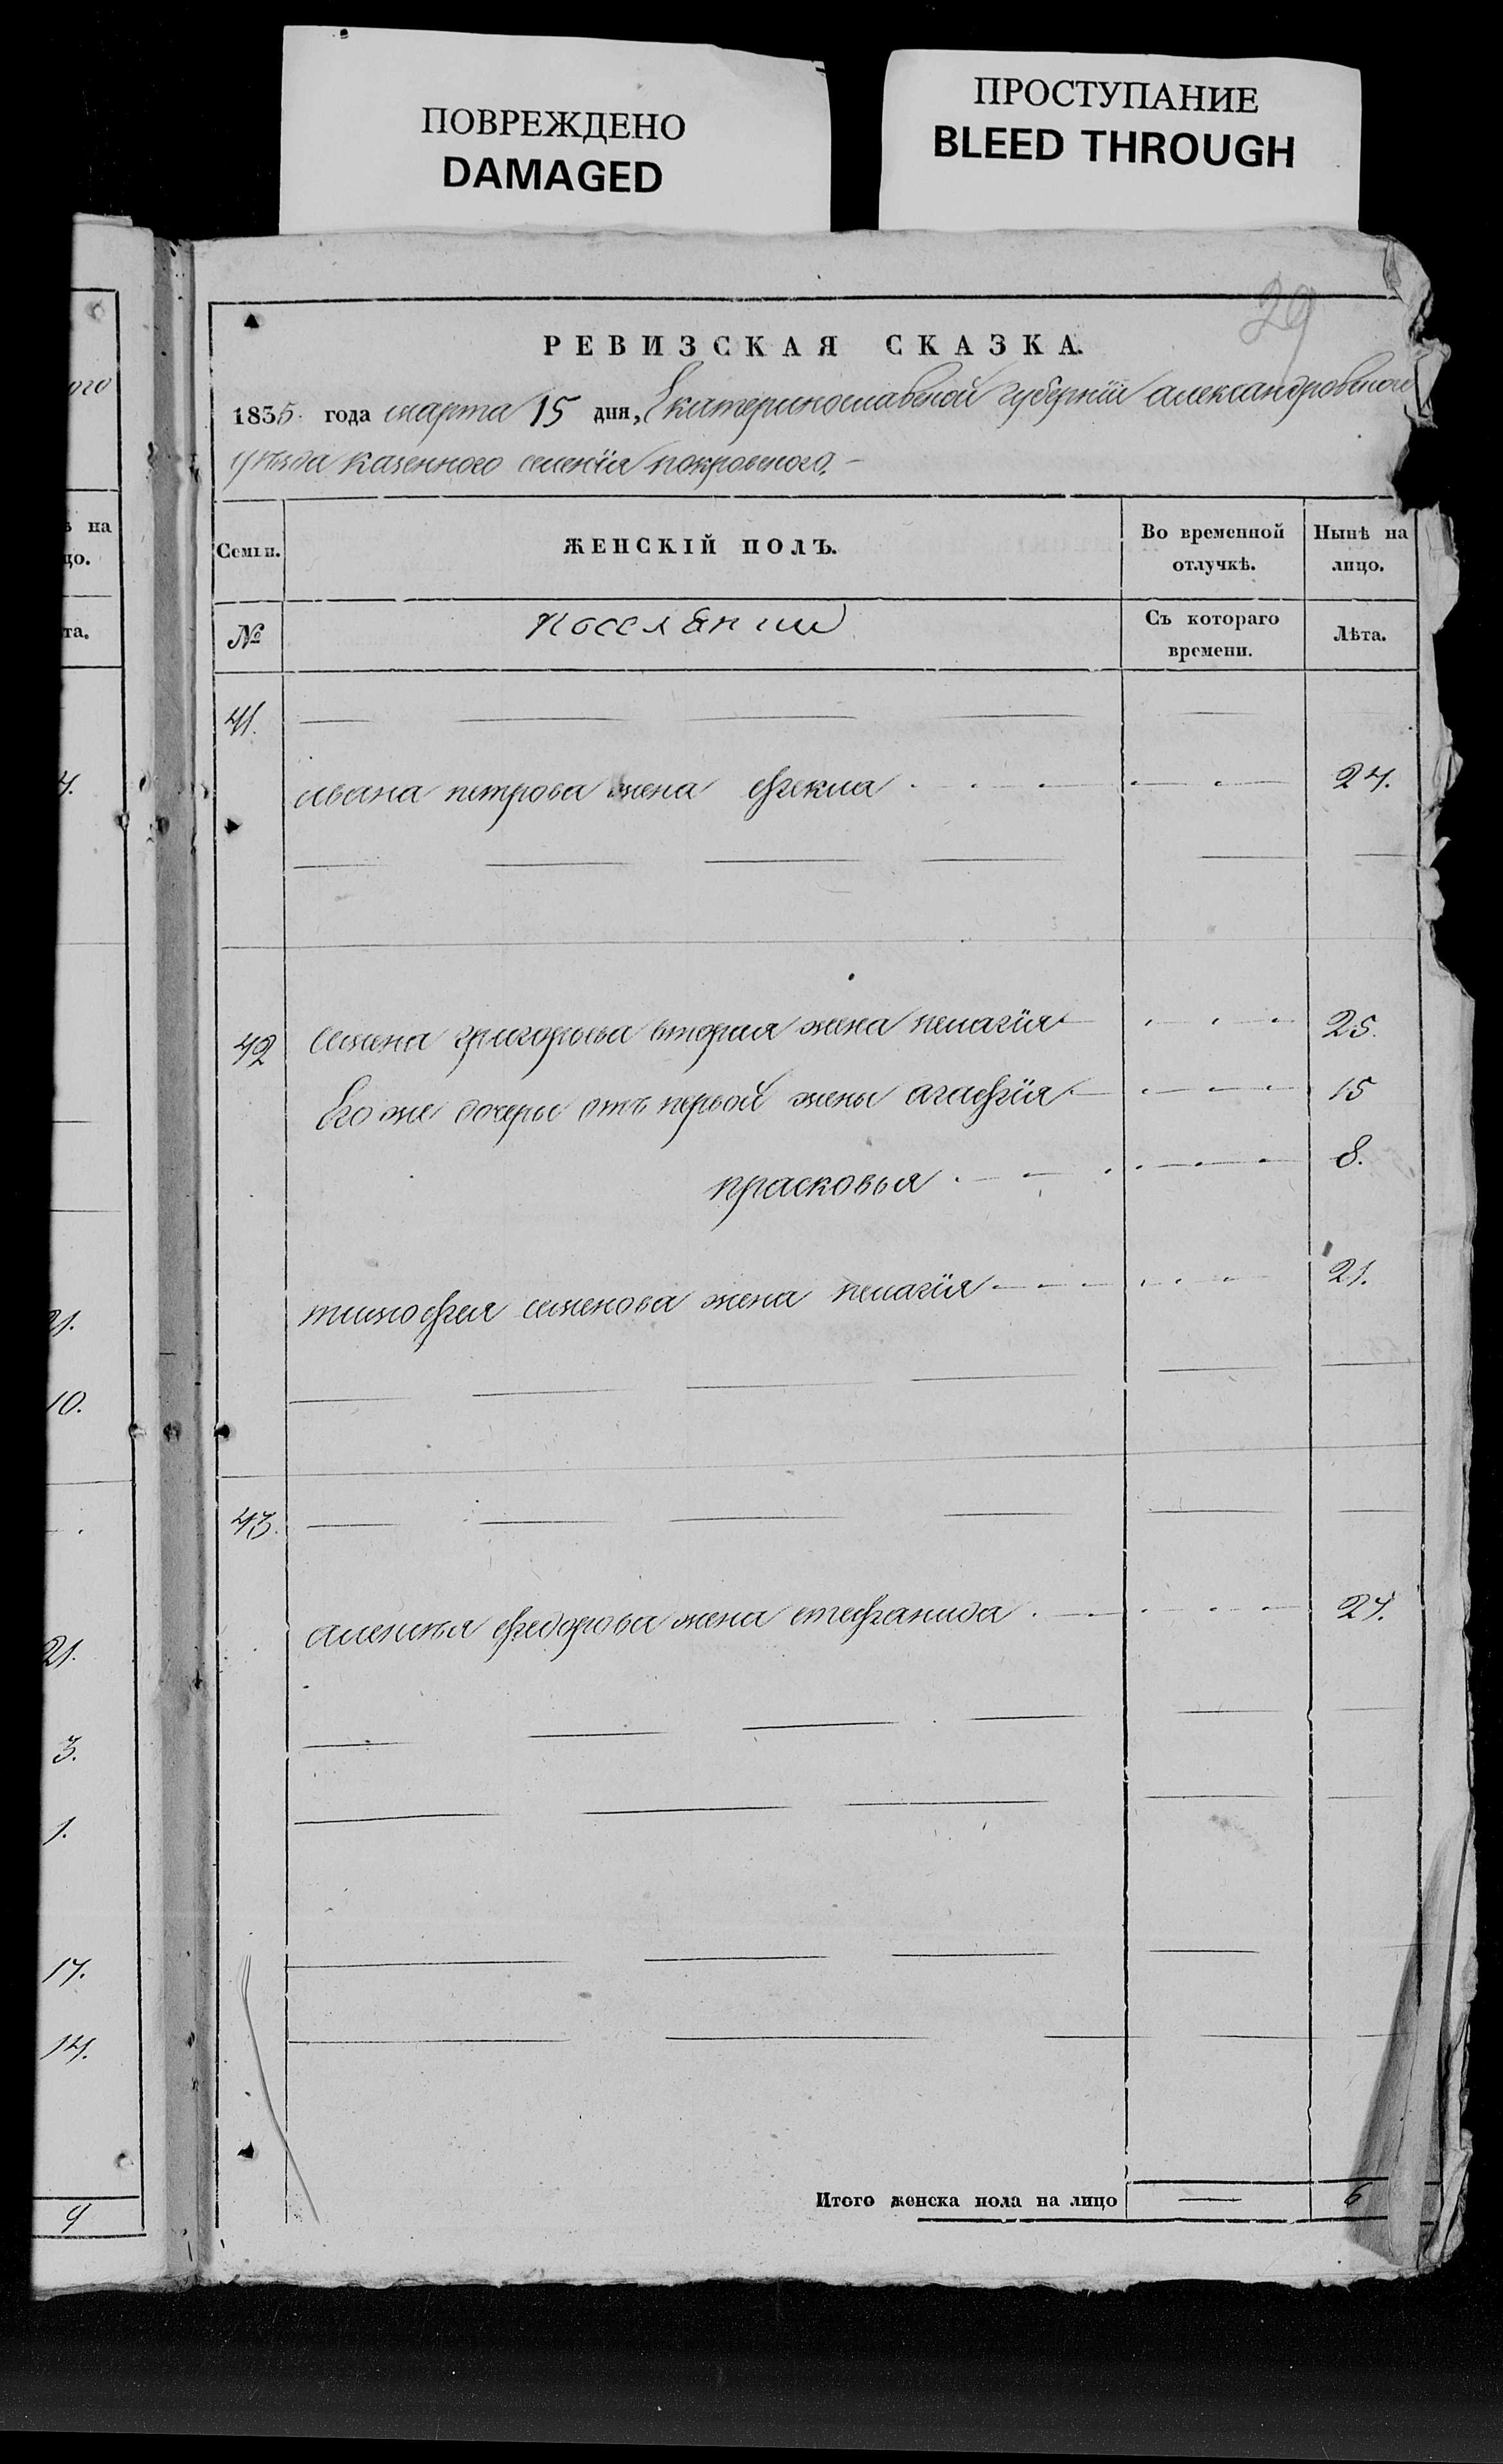 ПОВРЕЖДЕНО
DAMAGED
ПРОСТУПАНИЕ
BLEED THROUGH
29
РЕВИЗСКАЯ СКАЗКА.
1835. года марта 15 дня, Екатеринославской губернїи александровского
уѣзда казенного селенїя покровского.
Семьи.
ЖЕНСКІЙ ПОЛЪ.
Во временной отлучкѣ.
Нынѣ на лицо.
№
Поселянии
Съ котораго времени.
Лѣта.
41.
ивана петрова жена фекла 24.
42 семена григорьева вторая жена пелагїя 25.
Его же дочеры отъ первой жены агафїя 15
прасковья 8.
тимофея семенова жена пелагїя 21.
43.
федорова жена стефанида 24.
Итого женска пола на лицо — 6
ого
ѣ на
цо.
та.
4.
21.
10.
21.
3.
1.
17.
14.
9